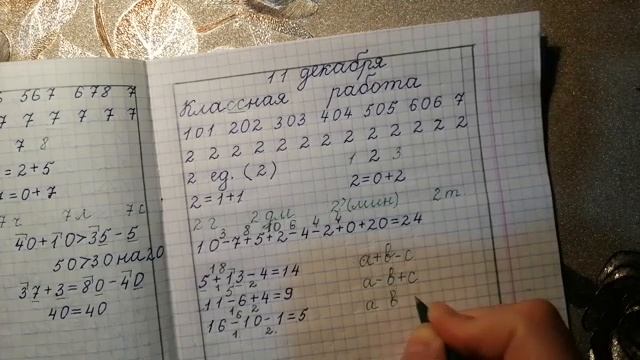 5 567 678 7
7 7 7 7 7 7
7 8
= 2+5
7=0+7
7ч 7л 7с
40+10>35-5
50>30 на 20
37+3=80-40
40=40
11 декабря
Классная работа
101 202 303 404 505 606 7
2 2 2 2 2 2 2 2 2 2 2 2
2 ед. (2) 1 2 3
2=1+1 2=0+2
2г 2дм 2(мин) 2т
3 8 10 6 4 4
10-7+5+2-4-2+0+20=24
18
5+13-4=14 a+b-c
5 2
11-6+4=9 a-b+c
16 2
16-10-1=5 a b
1. 2.